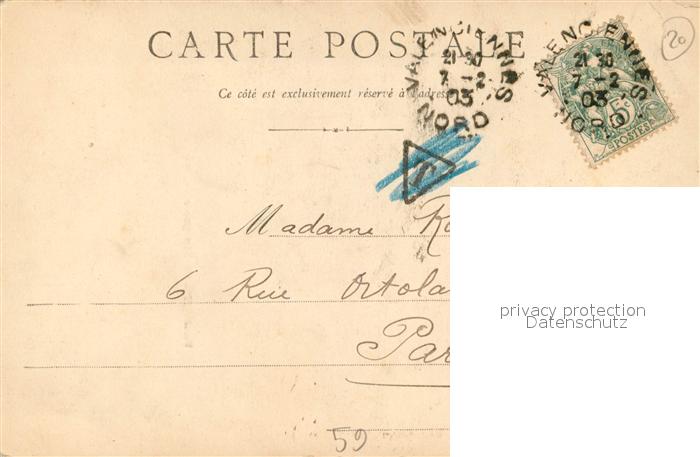 CARTE POSTALE
Ce côté est exclusivement réservé à l'adresse
VALENCIENNES
21 30
7 -2
03
NORD
VALENCIENNES
21 30
7 -2
03
NORD
5c
POSTES
20
T
Madame
6 Rue Ortola
Par
59
privacy protection
Datenschutz